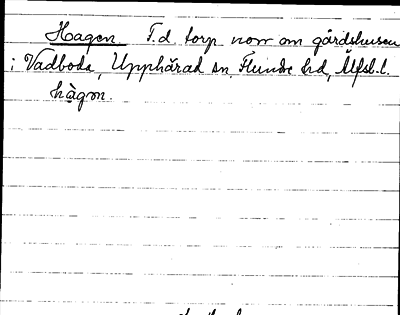 Hagen F.d. torp norr om gårdshusen
i Vadboda, Upphärad sn, Flundre hd, Älfsb. l.
hàgǝn.